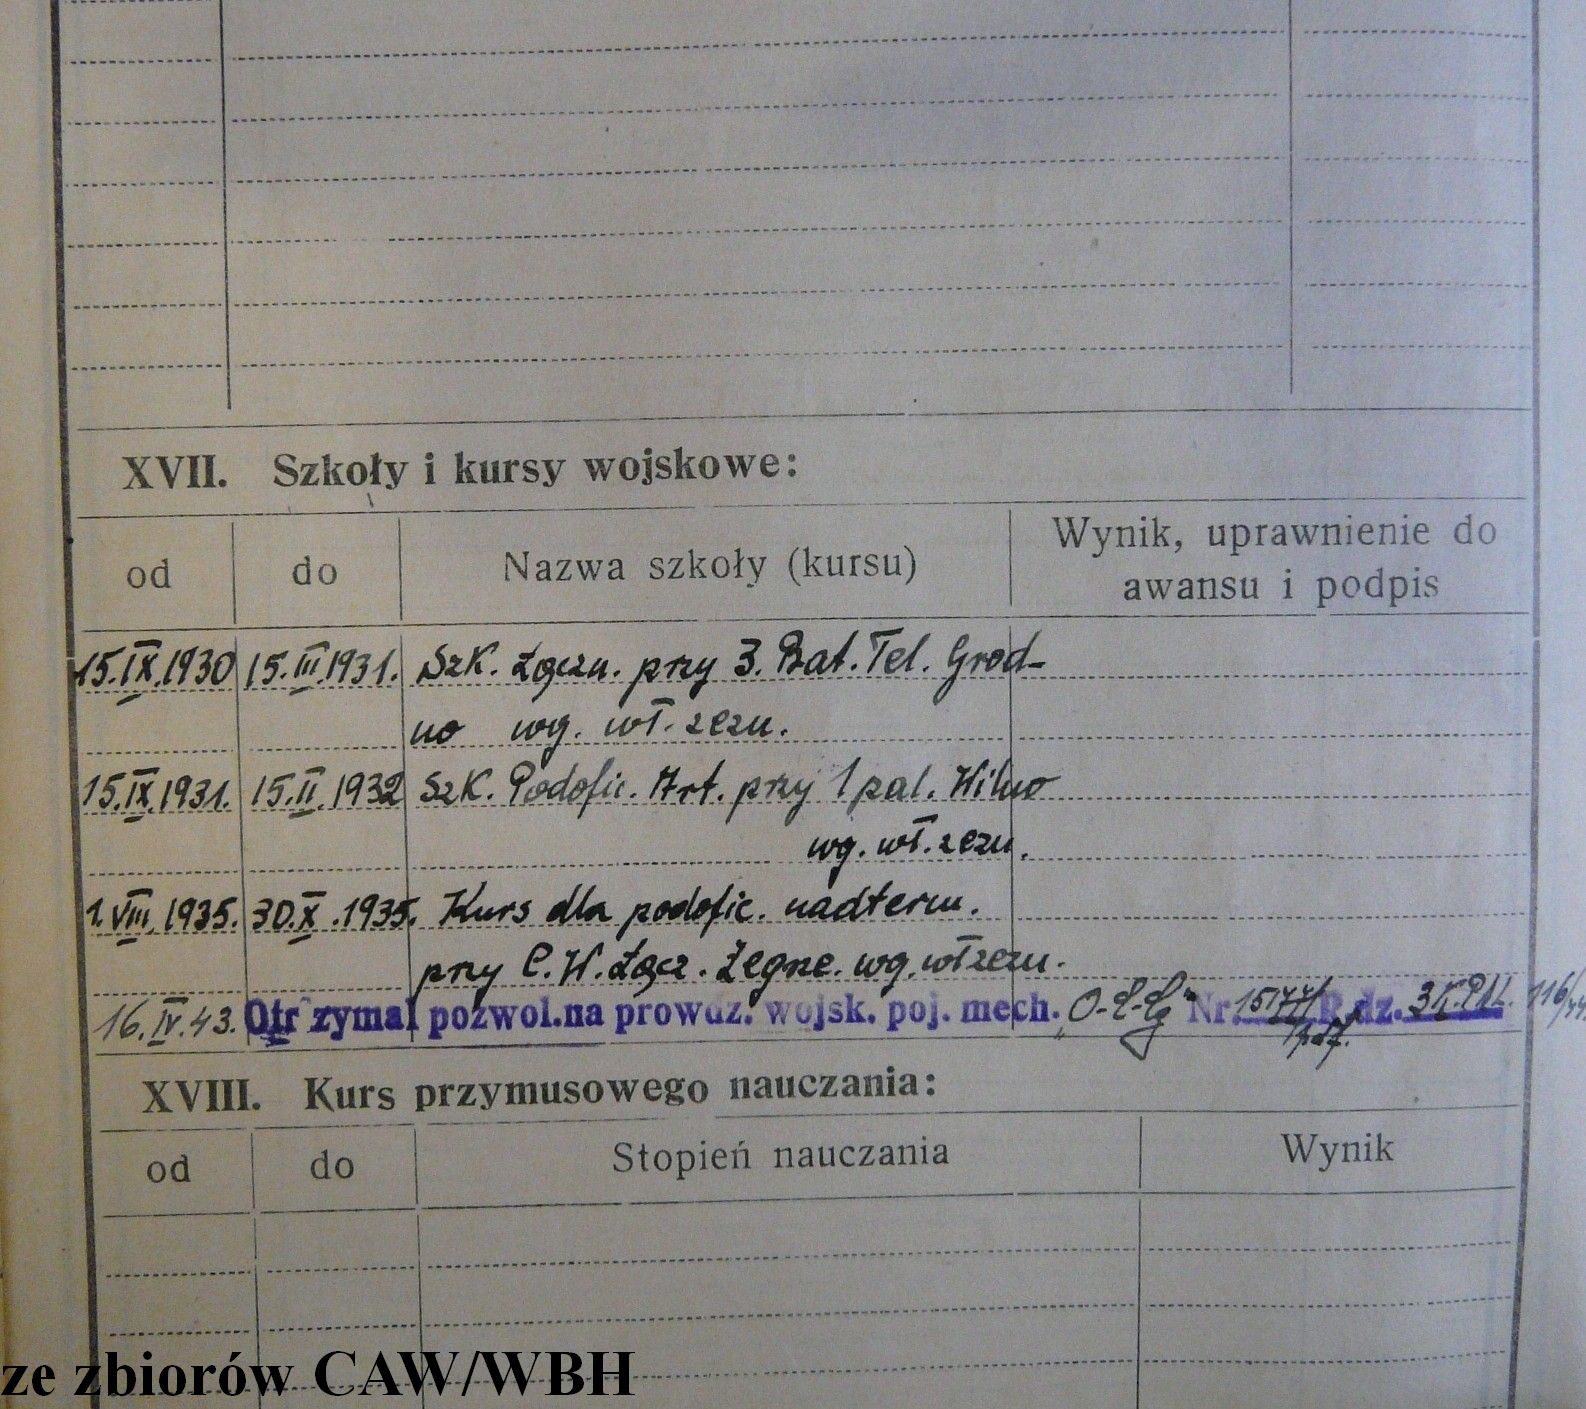 XVII. Szkoły i kursy wojskowe:
od do Nazwa szkoły (kursu) Wynik, uprawnienie do
awansu i podpis
15.IX.1930 15.III.1931. Szk. Łączn. przy 3. Bat. Tel. Grod-
no wg. wł. zezn.
15.IX.1931. 15.II.1932 Szk. Podofic. Art. przy 1 pal. Wilno
wg. wł. zezn.
1.VIII.1935. 30.X.1935. Kurs dla podofic. nadterm.
przy C.W. Łącz. Zegrze. wg. wł zezn.
16.IV.43. Otrzymał pozwol.na prowdz. wojsk. poj. mech. Nr. R.dz. 116/44
XVIII. Kurs przymusowego nauczania:
od do Stopień nauczania Wynik
ze zbiorów CAW/WBH